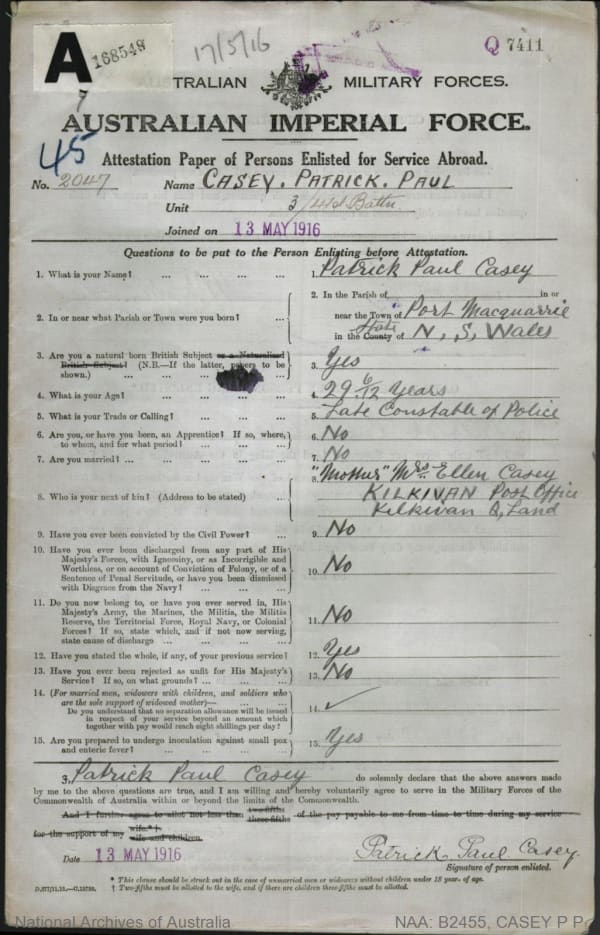 A 168548
17/5/16
Q 7411
TRALIAN MILITARY FORCES.
7
AUSTRALIAN IMPERIAL FORCE.
45
Attestation Paper of Persons Enlisted for Service Abroad.
No. 2047 Name CASEY. PATRICK. PAUL
Unit 3/42d Battn
Joined on 13 MAY 1916
Questions to be put to the Person Enlisting before Attestation.
1. What is your Name? ... ... ... ... 1. Patrick Paul Casey
2. In or near what Parish or Town were you born? ... 2. In the Parish of in or
near the Town of Port Macquarrie
in the County of State N. S. Wales
3. Are you a natural born British Subject or a Naturalised
British Subject? (N.B.—If the latter, papers to be
shown.) ... ... 3. Yes
4. What is your Age? ... ... ... 4. 29 6/12 Years
5. What is your Trade or Calling? ... ... ... 5. Late Constable of Police
6. Are you, or have you been, an Apprentice? If so, where,
to whom, and for what period? ... ... ... 6. No
7. Are you married? ... ... ... ... 7. No
8. Who is your next of kin? (Address to be stated) ... 8. "Mother" Mrs. Ellen Casey
KILKIVAN Post Office
Kilkivan Q, Land
9. Have you ever been convicted by the Civil Power? ... 9. No
10. Have you ever been discharged from any part of His
Majesty's Forces, with Ignominy, or as Incorrigible and
Worthless, or on account of Conviction of Felony, or of a
Sentence of Penal Servitude, or have you been dismissed
with Disgrace from the Navy? ... ... ... 10. No
11. Do you now belong to, or have you ever served in, His
Majesty's Army, the Marines, the Militia, the Militia
Reserve, the Territorial Force, Royal Navy, or Colonial
Forces? If so, state which, and if not now serving,
state cause of discharge ... ... ... ... 11. No
12. Have you stated the whole, if any, of your previous service? 12. Yes
13. Have you ever been rejected as unfit for His Majesty's
Service? If so, on what grounds? ... ... ... 13. No
14. (For married men, widowers with children, and soldiers who
are the sole support of widowed mother)—
Do you understand that no separation allowance will be issued
in respect of your service beyond an amount which
together with pay would reach eight shillings per day? 14. ✓
15. Are you prepared to undergo inoculation against small pox
and enteric fever? ... ... ... ... 15. Yes
I, Patrick Paul Casey do solemnly declare that the above answers made
by me to the above questions are true, and I am willing and hereby voluntarily agree to serve in the Military Forces of the
Commonwealth of Australia within or beyond the limits of the Commonwealth.
And I further agree to allot not less than two-fifths three-fifths of the pay payable to me from time to time during my service
for the support of my wife.*†
wife and children.
Date 13 MAY 1916 Patrick Paul Casey.
Signature of person enlisted.
* This clause should be struck out in the case of unmarried men or widowers without children under 18 years of age.
† Two-fifths must be allotted to the wife, and if there are children three-fifths must be allotted.
National Archives of Australia NAA: B2455, CASEY P P